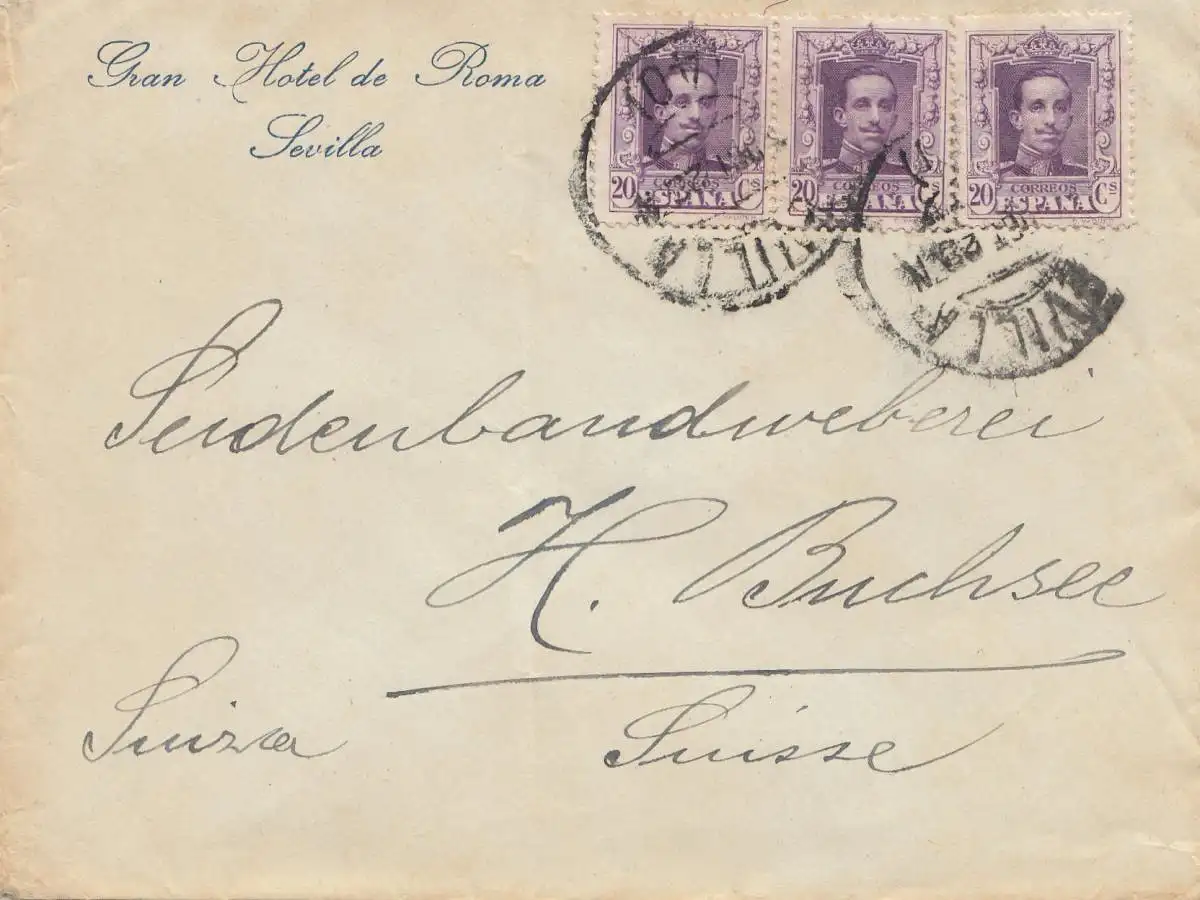 Gran Hotel de Roma
Sevilla
20 CORREOS Cs
ESPAÑA
20 CORREOS Cs
ESPAÑA
20 CORREOS Cs
ESPAÑA
Seidenbandweberei
H. Buchsee
Suiza Suisse